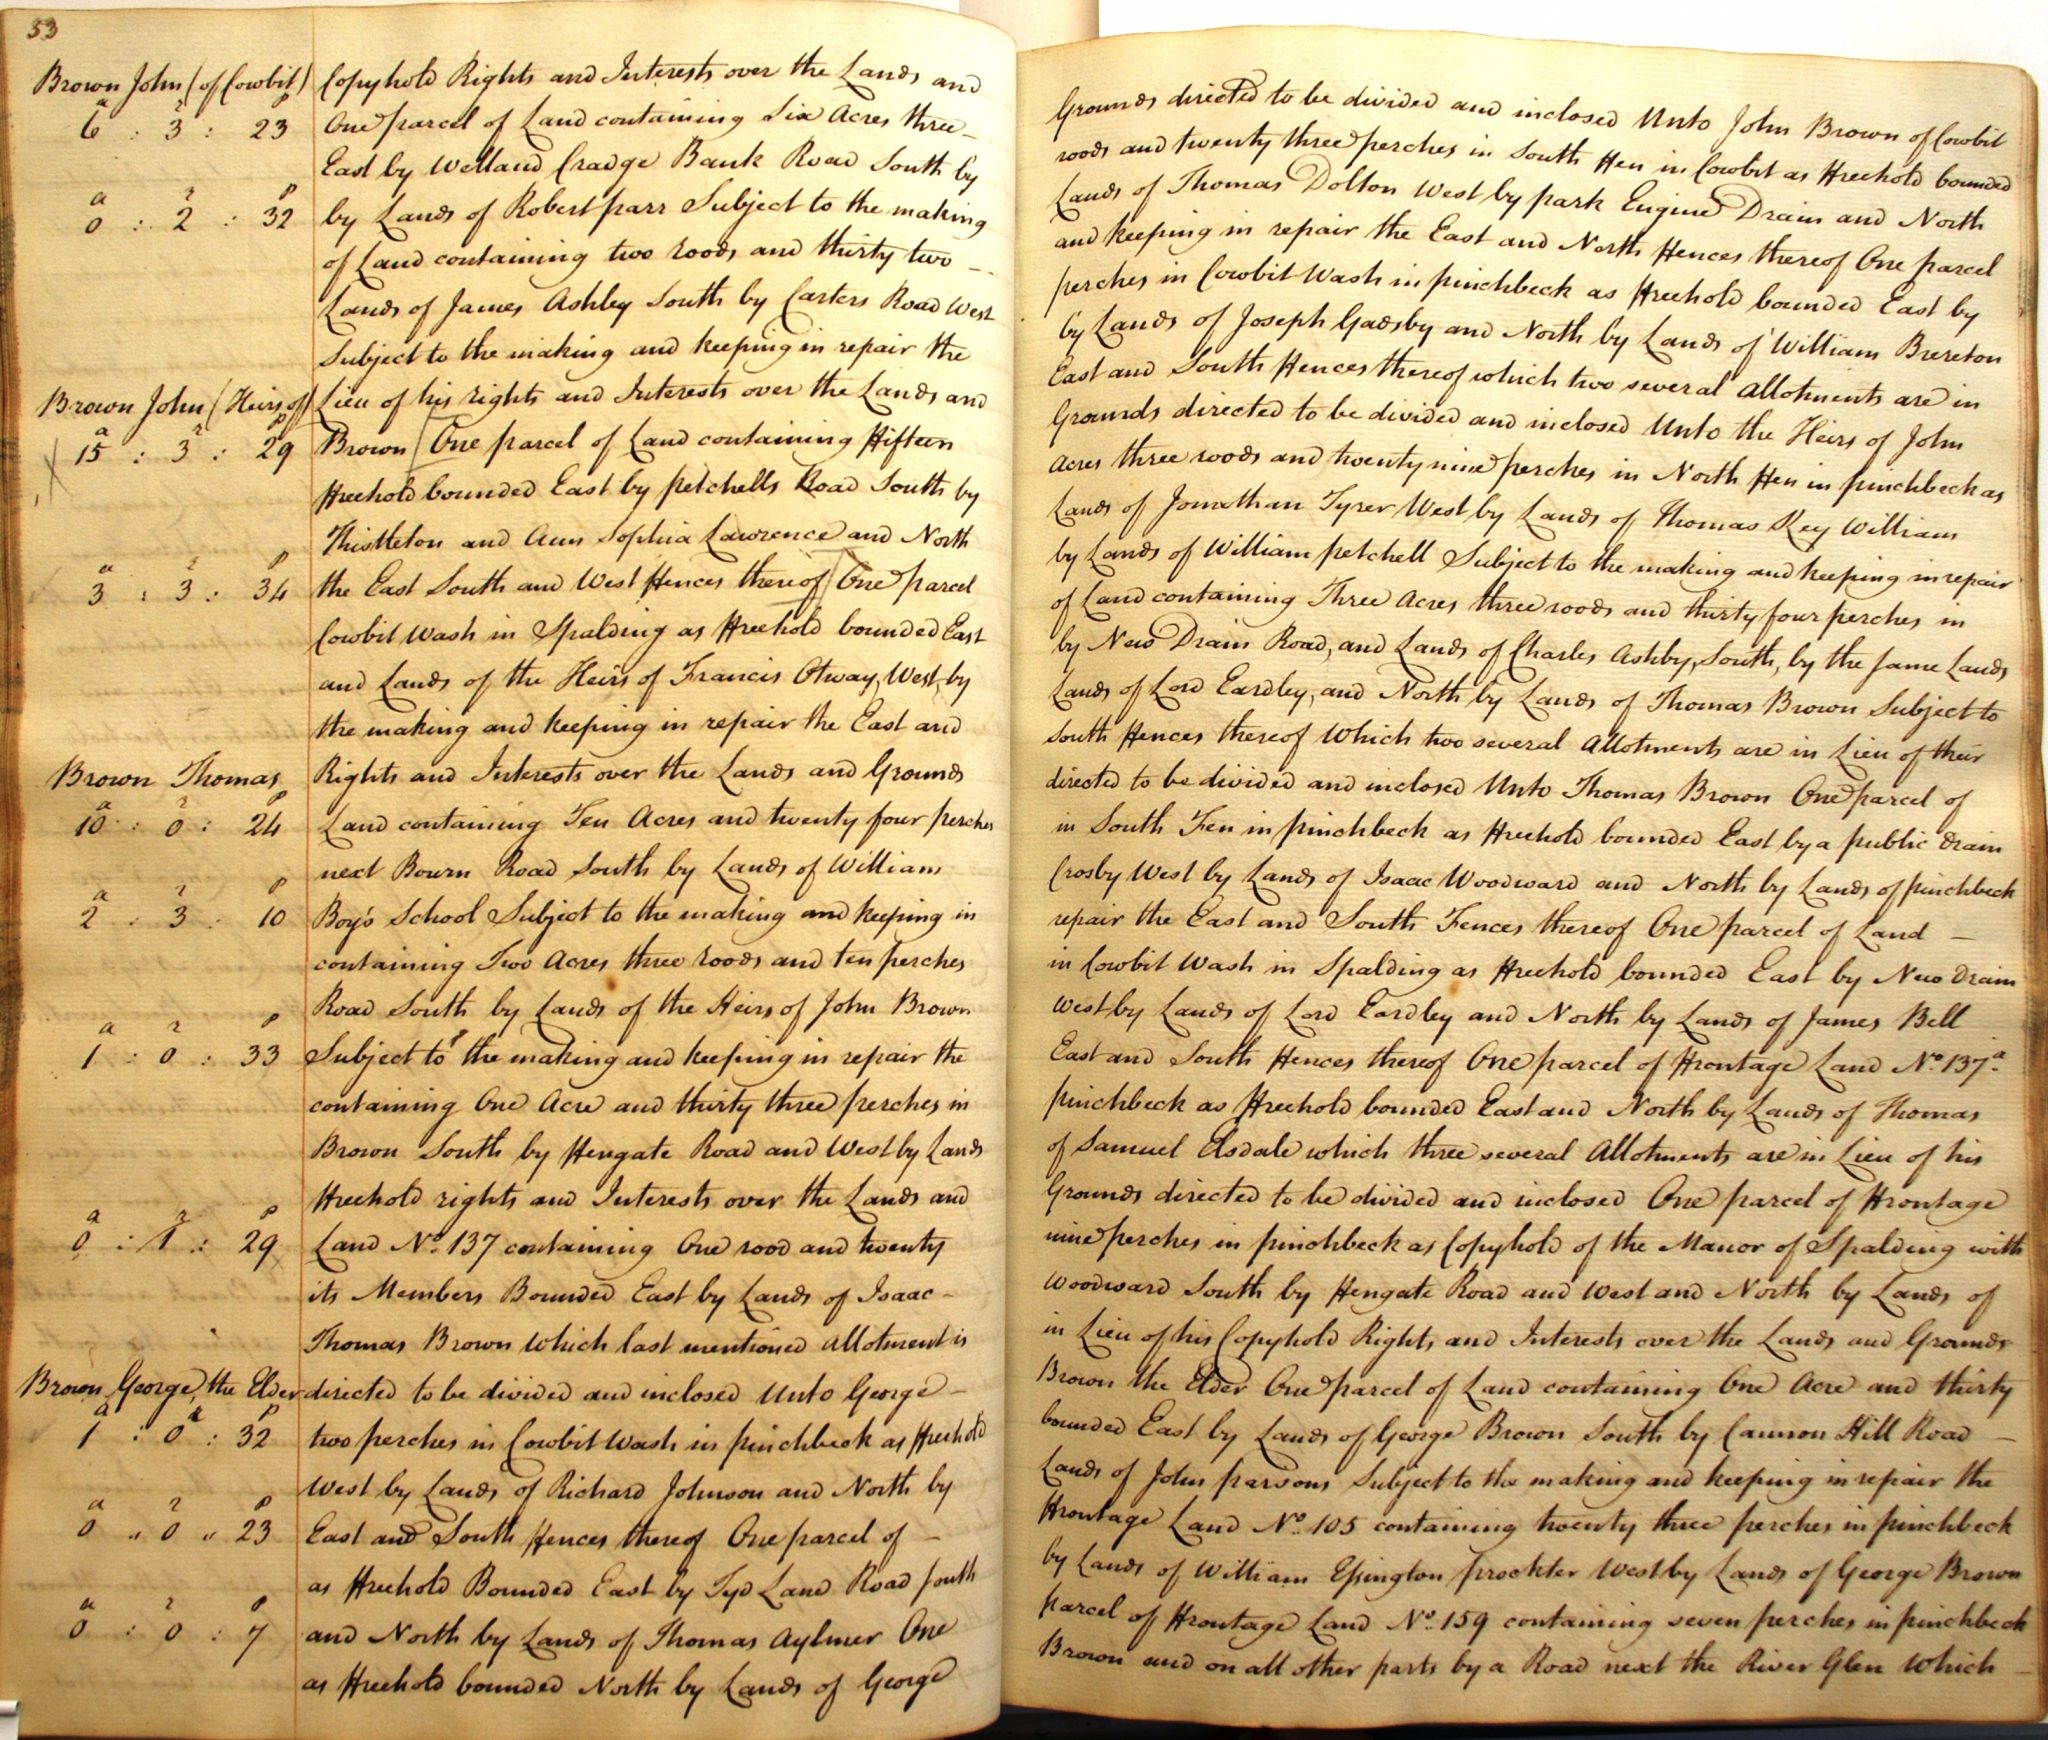 53
Brown John (of Cowbit)
Copyhold Rights and Interests over the Lands and
Grounds directed to be divided and inclosed Unto John Brown of Cowbit
a r p
6 : 3 : 23
One parcel of Land containing Six Acres three
roods and twenty three perches in South Fen in Cowbit as Freehold bounded
East by Welland Cradge Bank Road South by
Lands of Thomas Dolton West by park Engine Drain and North
a r p
0 : 2 : 32
by Lands of Robert parr Subject to the making
and keeping in repair the East and North Fences thereof One parcel
of Land containing two roods and thirty two
perches in Cowbit Wash in pinchbeck as Freehold bounded East by
Lands of James Ashley South by Carters Road West
by Lands of Joseph Gadsby and North by Lands of William Brereton
Subject to the making and keeping in repair the
East and South Fences thereof which two several allotments are in
Brown John (Heirs of)
Lieu of his rights and Interests over the Lands and
Grounds directed to be divided and inclosed Unto the Heirs of John
a r p
15 : 3 : 29
Brown One parcel of Land containing Fifteen
Acres three roods and twenty nine perches in North Fen in pinchbeck as
Freehold bounded East by petchells Road South by
Lands of Jonathan Tyrer West by Lands of Thomas Key William
Thistleton and Ann Sophia Lawrence and North
by Lands of William petchell Subject to the making and keeping in repair
a r p
3 : 3 : 34
the East South and West Fences thereof One parcel
of Land containing Three Acres three roods and thirty four perches in
Cowbit Wash in Spalding as Freehold bounded East
by New Drain Road, and Lands of Charles Ashby, South, by the same Lands
and Lands of the Heirs of Francis Otway, West, by
Lands of Lord Eardley, and North by Lands of Thomas Brown Subject to
the making and keeping in repair the East and
South Fences thereof Which two several Allotments are in Lieu of their
Brown Thomas
Rights and Interests over the Lands and Grounds
directed to be divided and inclosed Unto Thomas Brown One parcel of
a r p
10 : 0 : 24
Land containing Ten Acres and twenty four perches
in South Fen in pinchbeck as Freehold bounded East by a public drain
next Bourn Road South by Lands of William
Crosby West by Lands of Isaac Woodward and North by Lands of pinchbeck
a r p
2 : 3 : 10
Boy's School Subject to the making and keeping in
repair the East and South Fences thereof One parcel of Land
containing Two Acres three roods and ten perches
in Cowbit Wash in Spalding as Freehold bounded East by New Drain
Road South by Lands of the Heirs of John Brown
West by Lands of Lord Eardley and North by Lands of James Bell
a r p
1 : 0 : 33
Subject to the making and keeping in repair the
East and South Fences thereof One parcel of Frontage Land No. 137a
containing One Acre and thirty three perches in
pinchbeck as Freehold bounded East and North by Lands of Thomas
Brown South by Fengate Road and West by Lands
of Samuel Elsdale which three several Allotments are in Lieu of his
Freehold rights and Interests over the Lands and
Grounds directed to be divided and inclosed One parcel of Frontage
a r p
0 : 1 : 29
Land No. 137 containing One rood and twenty
nine perches in pinchbeck as Copyhold of the Manor of Spalding with
its Members Bounded East by Lands of Isaac
Woodward South by Fengate Road and West and North by Lands of
Thomas Brown Which last mentioned Allotment is
in Lieu of his Copyhold Rights and Interests over the Lands and Grounds
Brown George, the Elder
directed to be divided and inclosed Unto George
Brown the Elder One parcel of Land containing One Acre and thirty
a r p
1 : 0 : 32
two perches in Cowbit Wash in pinchbeck as Freehold
bounded East by Lands of George Brown South by Cannon Hill Road
West by Lands of Richard Johnson and North by
Lands of John parsons Subject to the making and keeping in repair the
a r p
0 " 0 " 23
East and South Fences thereof One parcel of
Frontage Land No. 105 containing twenty three perches in pinchbeck
as Freehold Bounded East by Tyd Land Road South
by Lands of William Essington prockter West by Lands of George Brown
a r p
0 : 0 : 7
and North by Lands of Thomas Aylmer One
parcel of Frontage Land No. 159 containing seven perches in pinchbeck
as Freehold bounded North by Lands of George
Brown and on all other parts by a Road next the River Glen Which